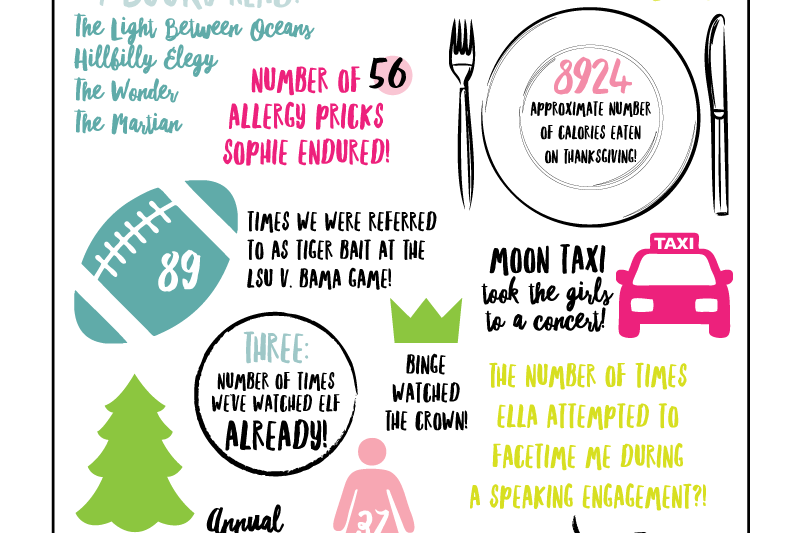 The Light Between Oceans
Hillbilly Elegy
The Wonder
The Martian
NUMBER OF 56
ALLERGY PRICKS
SOPHIE ENDURED!
8924
APPROXIMATE NUMBER
OF CALORIES EATEN
ON THANKSGIVING!
89
TIMES WE WERE REFERRED
TO AS TIGER BAIT AT THE
LSU V. BAMA GAME!
TAXI
MOON TAXI
took the girls
to a concert!
THREE:
NUMBER OF TIMES
WE'VE WATCHED ELF
ALREADY!
BINGE
WATCHED
THE CROWN!
THE NUMBER OF TIMES
ELLA ATTEMPTED TO
FACETIME ME DURING
A SPEAKING ENGAGEMENT?!
Annual